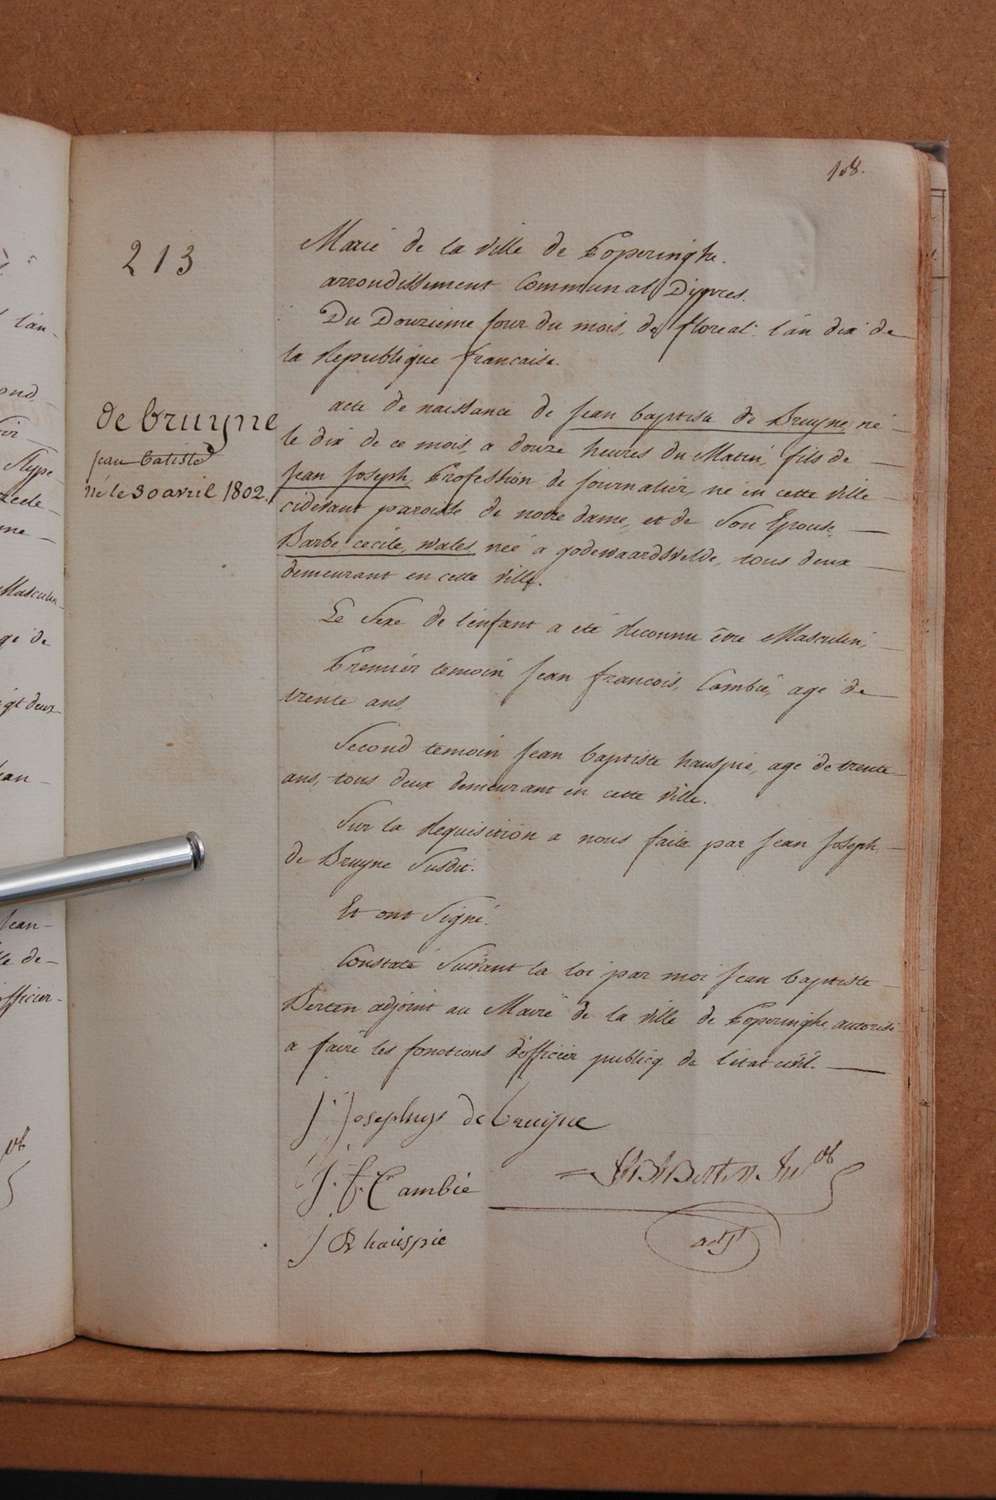 108.
213
Mairie de la Ville de Poperinghe.
arrondissement Communal D'ypres.
Du Douzieme Jour du mois de floreal l'an dix de
la Republique francaise.
de bruyne
jean batiste
né le 30 avril 1802.
acte de naissance de Jean baptiste de Bruyne né
le dix de ce mois, a douze heures du Matin, fils de
Jean Joseph, Profession de Journalier, né en cette ville
cidevant paroisse de notre dame, et de Son Epouse
Barbe cecile wales née a godewaardsvelde, tous deux
demeurant en cette ville.
Le Sexe de l'enfant a été Reconnu être Masculin,
Premier temoin Jean francois Cambié, agé de
trente ans
Second temoin Jean baptiste hauspie, agé de trente
ans, tous deux demeurant en cette ville.
Sur la Requisition a nous faite par Jean Joseph
de Bruyne Susdit.
Et ont Signé.
Constaté Suivant la loi par moi Jean baptiste
Berten adjoint au Maire de la ville de Poperinghe autorisé
a faire les fonctions d'officier publicq de l'etat civil.
J. Josephus de bruyne
J. f. Cambié
J B hauspie
adjt